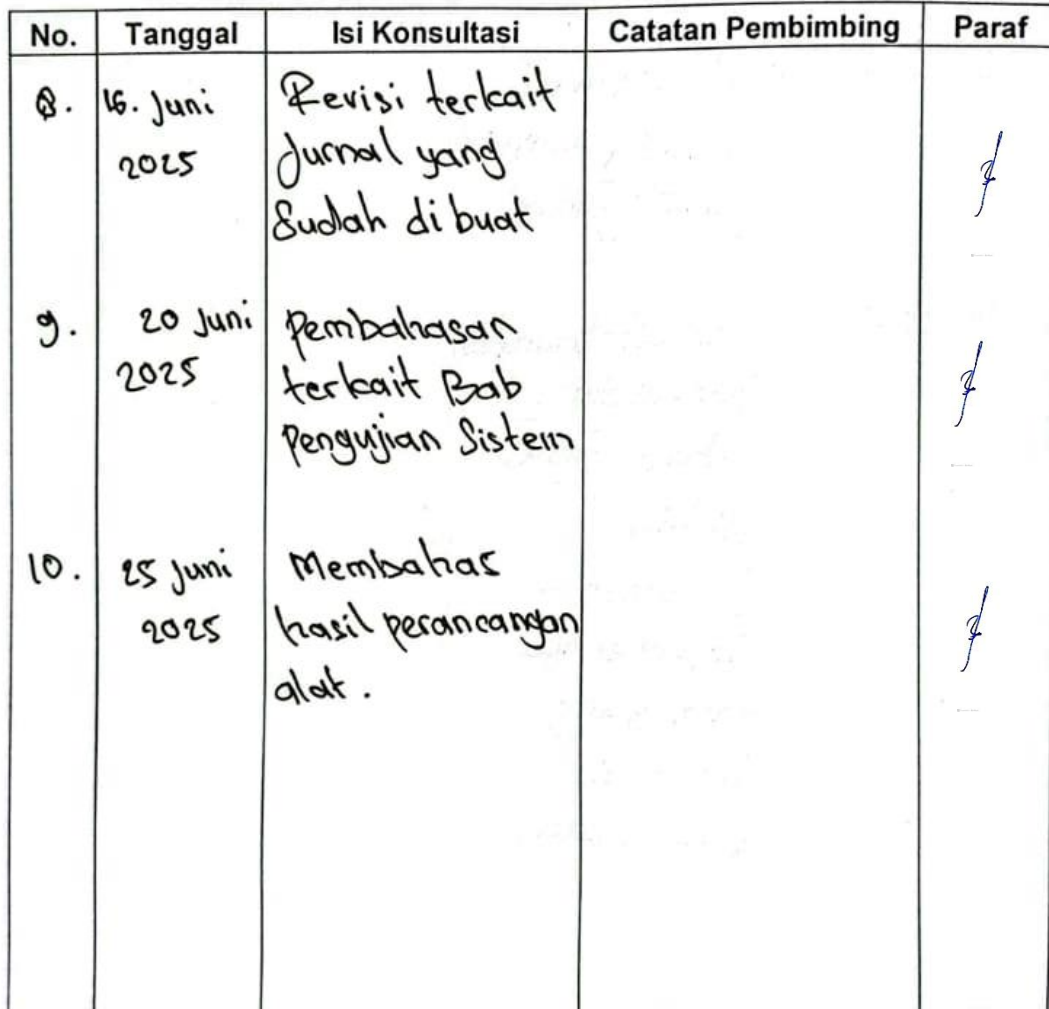 No. Tanggal Isi Konsultasi Catatan Pembimbing Paraf
8. 16. Juni Revisi terkait
2025 Jurnal yang
Sudah di buat
9. 20 Juni Pembahasan
2025 terkait Bab
Pengujian Sistem
10. 25 Juni Membahas
2025 hasil perancangan
alat.